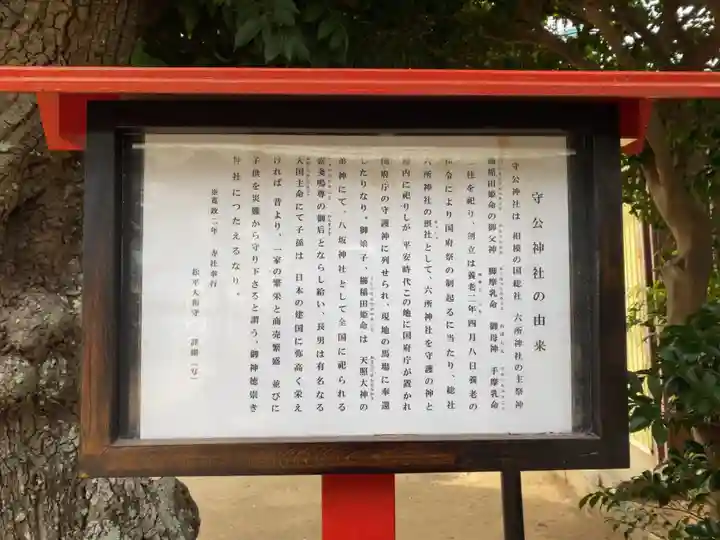 守公神社の由来
守公神社は 相模の国総社 六所神社の主祭神
櫛稲田姫命の御父神 脚摩乳命 御母神 手摩乳命
二柱を祀り、創立は養老二年四月八日養老の
令により国府祭の制起るに当たり、総社
六所神社の摂社として、六所神社を守護の神と
内に祀りしが 平安時代この地に国府庁が置かれ
国府庁の守護神に列せられ、現地の馬場に奉遷
したりなり。御娘子、櫛稲田姫命は 天照大神の
弟神にて、八坂神社として全国に祀られる
素戔嗚尊の御后とならし給い、長男は有名なる
大国主命にて子孫は 日本の建国に弥高く栄え
ければ 昔より、一家の繁栄と商売繁盛 並びに
子供を災難から守り下さると謂う、御神徳崇き
神社につたえるなり。
※寛政二年 寺社奉行
松平右衛守 詳細(写)